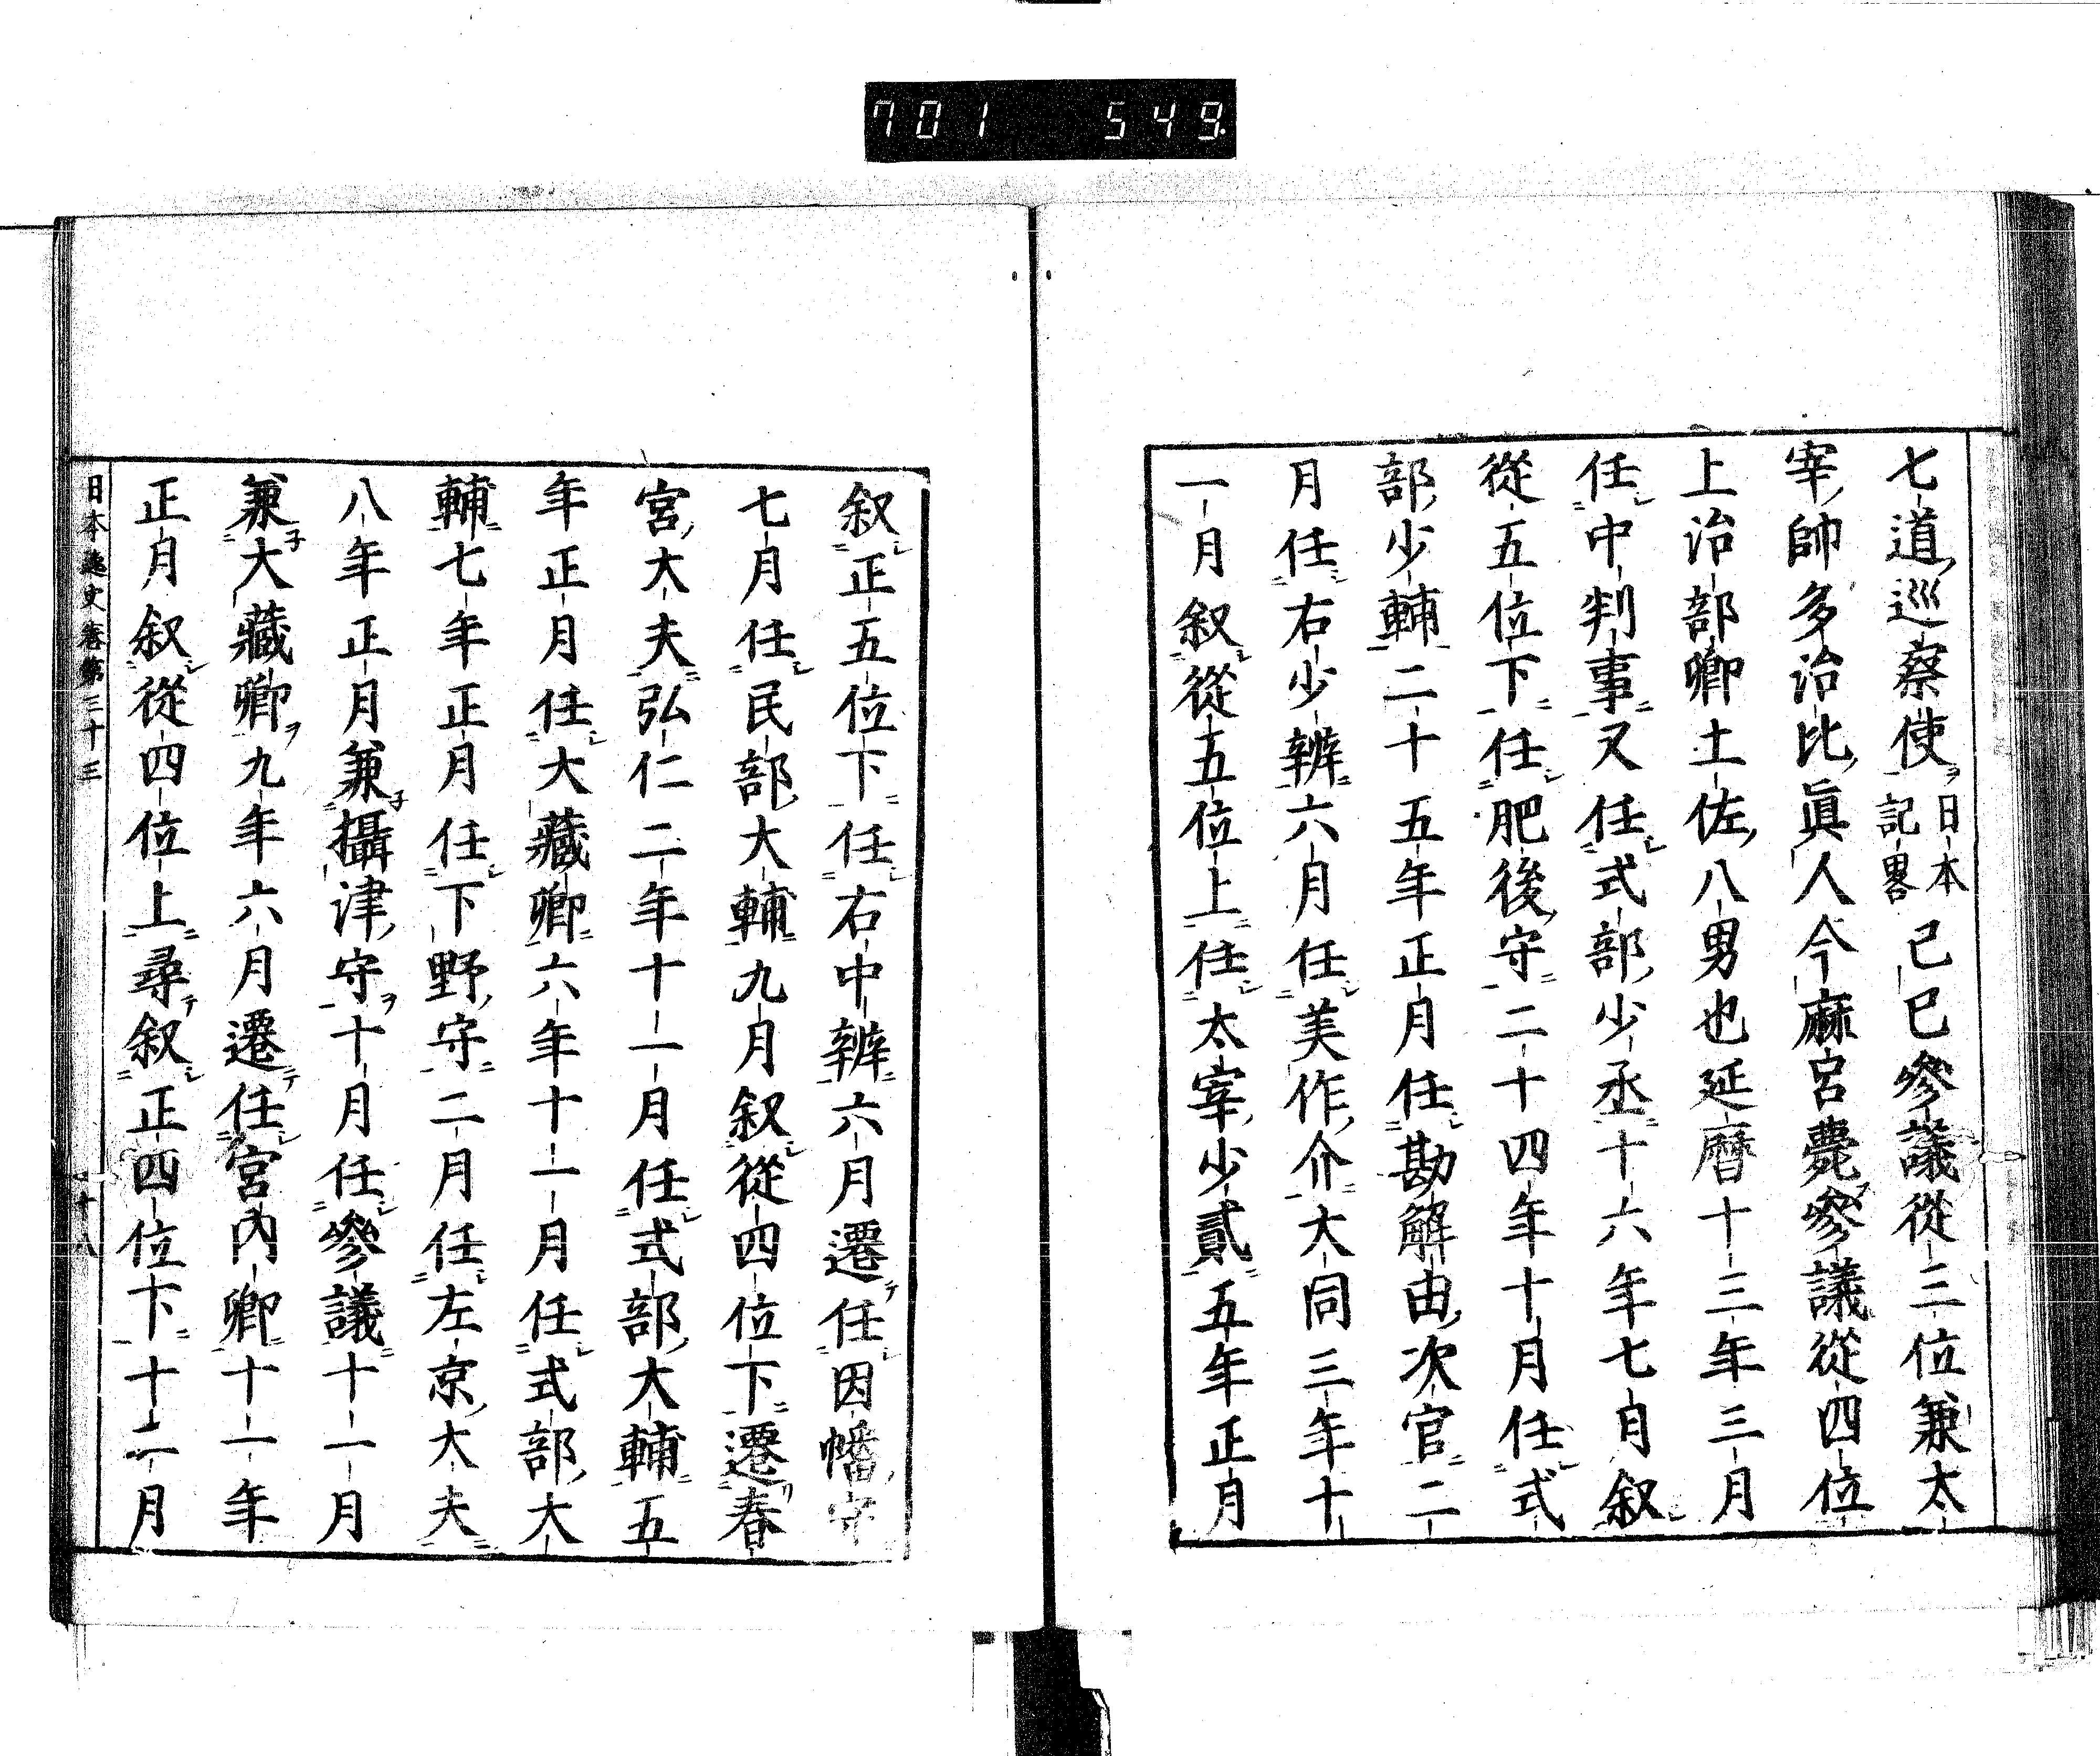 701 549
七道巡察使日本記畧己巳參議從三位兼太
宰帥多治比眞人今麻呂薨參議從四位
上治部卿土佐八男也延曆十三年三月
任中判事又任式部少丞十六年七月叙
從五位下任肥後守二十四年十月任式
部少輔二十五年正月任勘解由次官二
月任右少辨六月任美作介大同三年十
一月叙從五位上任太宰少貳五年正月
叙正五位下任右中辨六月遷任因幡守
七月任民部大輔九月叙從四位下遷春
宮大夫弘仁二年十一月任式部大輔五
年正月任大藏卿六年十一月任式部大
輔七年正月任下野守二月任左京大夫
八年正月兼攝津守十月任參議十一月
兼大藏卿九年六月遷任宮內卿十一年
正月叙從四位上尋叙正四位下十二月
日本逸史卷第三十三 十八